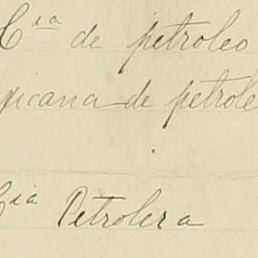 Cia de petroleo
xicana de petrole
Cia Petrolera